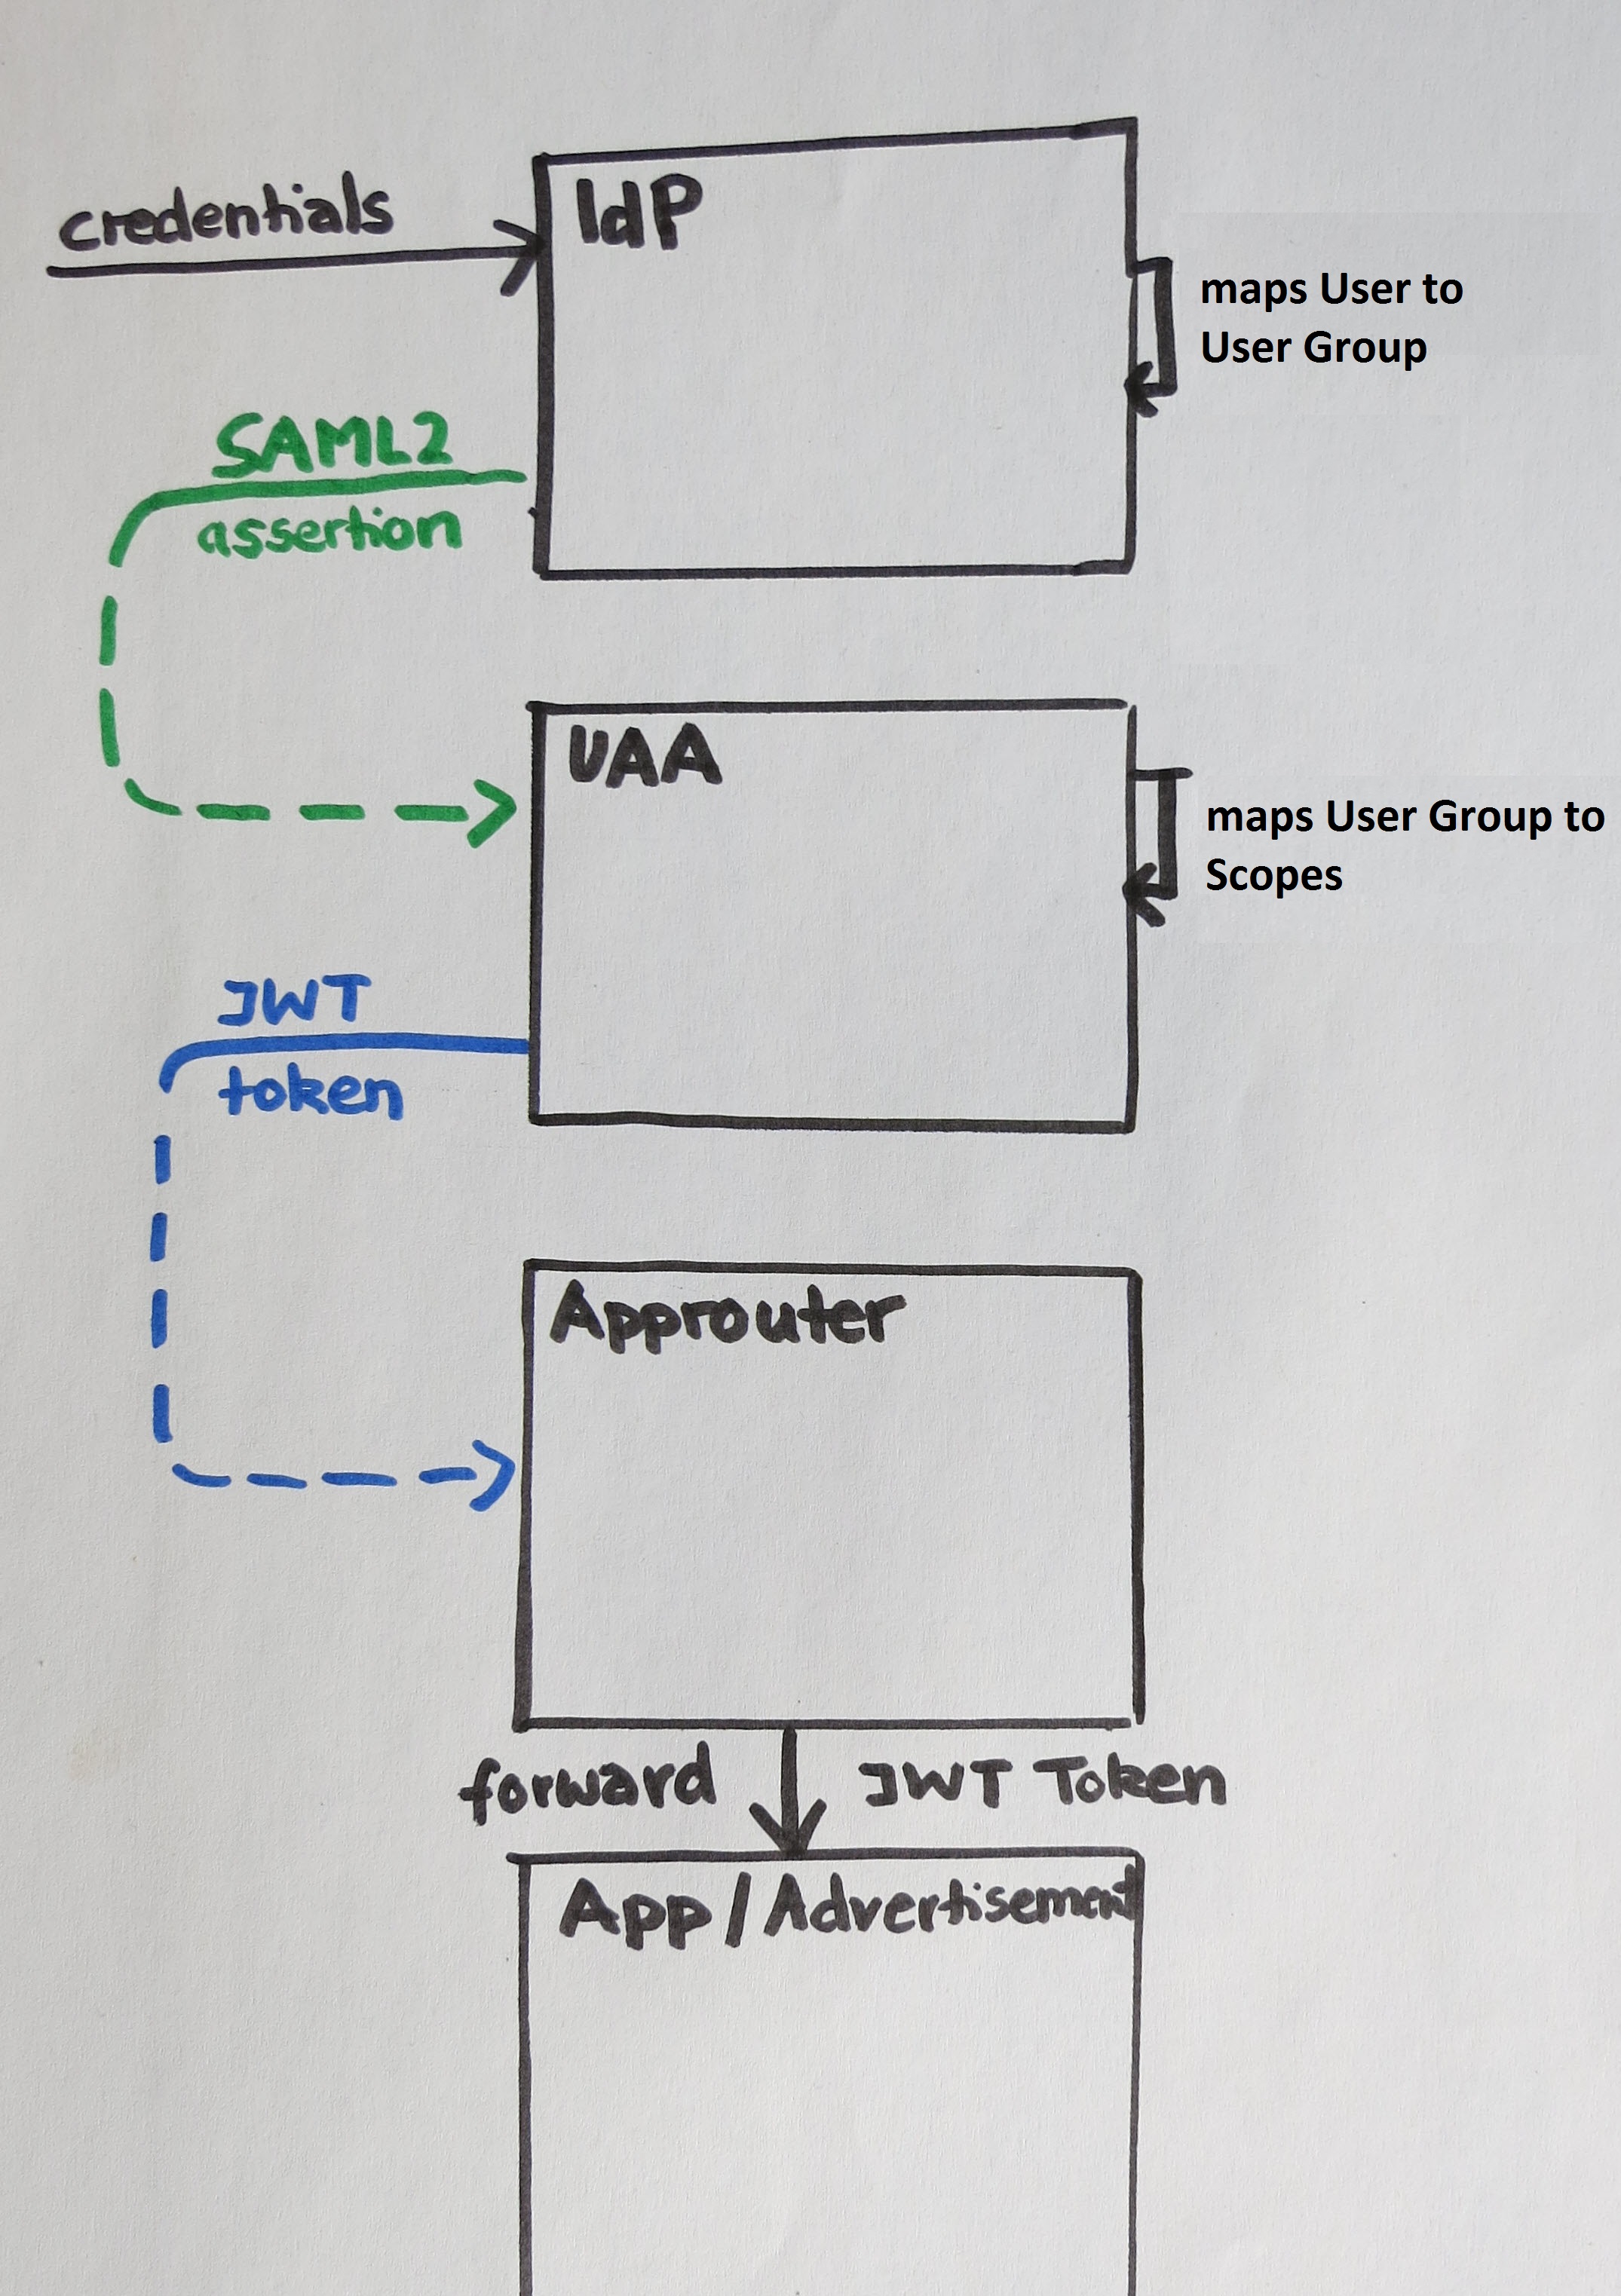 credentials
IdP
maps User to
User Group
SAML2
assertion
UAA
maps User Group to
Scopes
JWT
token
Approuter
forward JWT Token
App / Advertisement